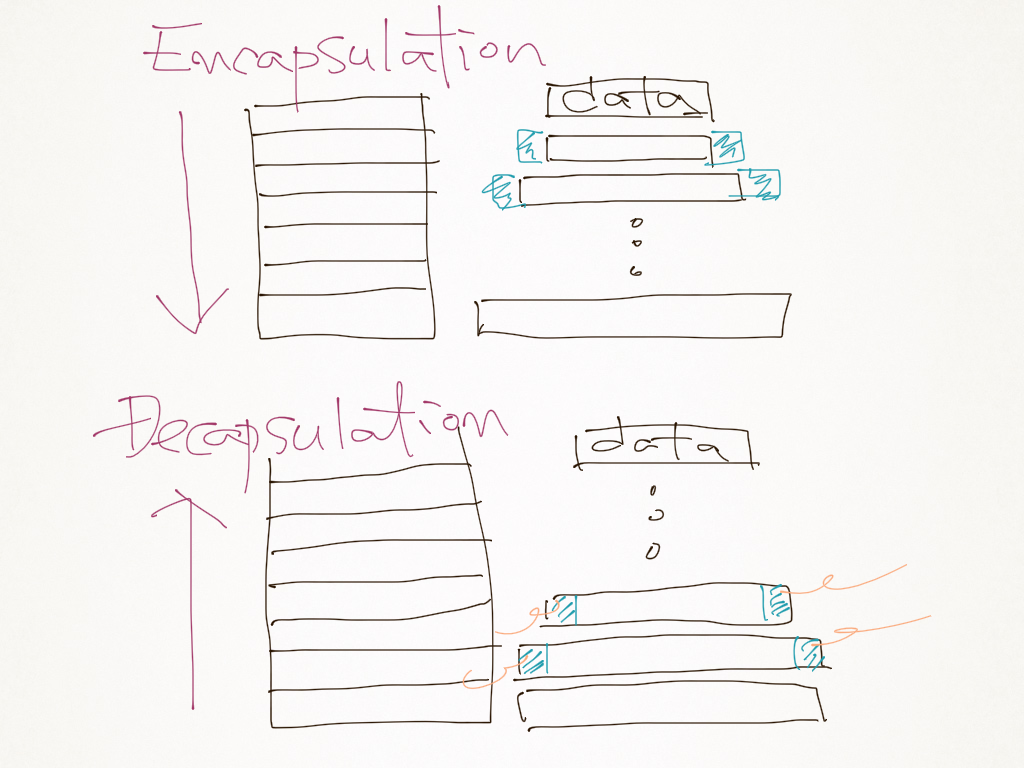 Encapsulation
data
Decapsulation
data